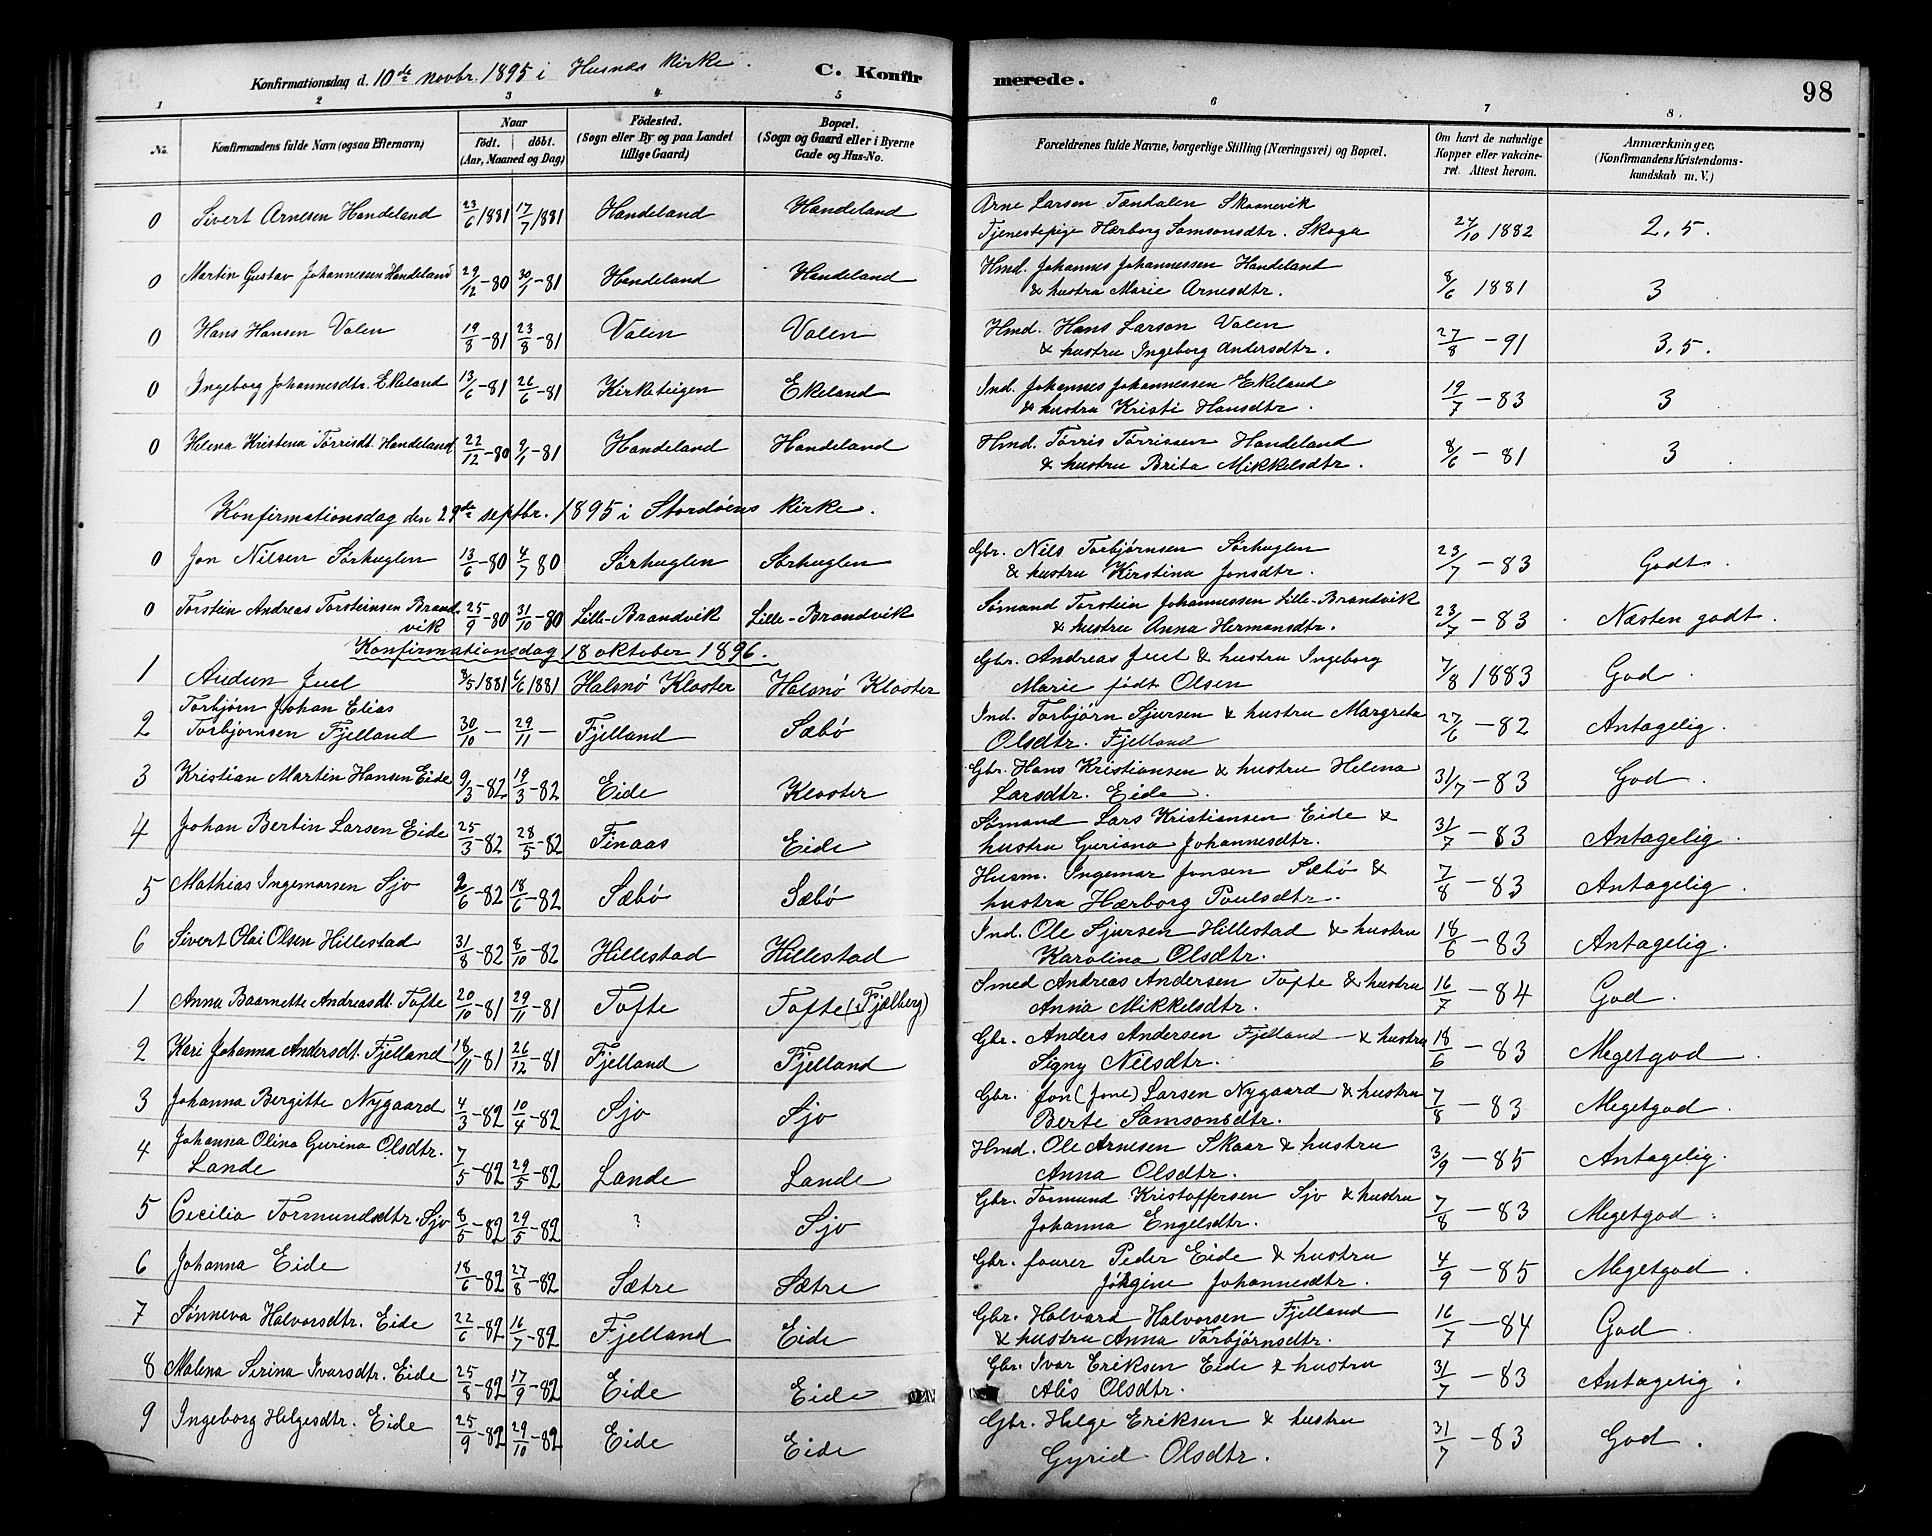 Konfirmationsdag d. 10de Novbr. 1895 i Husnes Kirke. C. Konfirmerede. 98
1 2 3 4 5 6 7 8.
No. Konfirmandens fulde Navn (ogsaa Efternavn) Naar födt. döbt. (Aar, Maaned og Dag) Födested. (Sogn eller By og paa Landet tillige Gaard) Bopæl. (Sogn og Gaard eller i Byerne Gade og Hus-No. Forældrenes fulde Navne, borgerlige Stilling (Næringsvei) og Bopæl. Om havt de naturlige Kopper eller vakcineret. Attest herom. Anmærkninger, (Konfirmandens Kristendomskundskab m. V.)
0 Sivert Arnesen Handeland 23/6 1881 17/7 1881 Handeland Handeland Arne Larsen Tondalen Skaanevik
Tjenestepige Hærborg Samsonsdtr. Skoga 24/10 1882 2,5.
0 Martin Gustav Johannessen Handeland 29/12-80 30/1-81 Handeland Handeland Hmd. Johannes Johannessen Handeland
& hustru Marie Arnesdtr. 8/6 1881 3
0 Hans Hansen Valen 19/8-81 23/8-81 Valen Valen Hmd. Hans Larson Valen
& hustru Ingeborg Andersdtr. 27/8-91 3,5.
0 Ingeborg Johannesdtr. Ekeland 13/6-81 26/6-81 Kirketeigen Ekeland Ind. Johannes Johannessen Ekeland
& hustru Kristi Hansdtr. 19/7-83 3
0 Helena Kristena Tørrisdt. Handeland 22/12-80 9/1-81 Handeland Handeland Hmd. Tørris Tørrissen Handeland
& hustru Brita Mikkelsdtr. 8/6-81 3
Konfirmationsdag den 29de septbr. 1895 i Stordøens Kirke.
0 Jon Nilsen Sørhuglen 13/6-80 4/7 80 Sørhuglen Sørhuglen Gbr. Nils Torbjørnsen Sørhuglen
& hustru Kirstina Jonsdtr. 23/7-83 Godt.
0 Torstein Andreas Torsteinsen Brandvik 25/9-80 31/10-80 Lille-Brandvik Lille-Brandvik Sømand Torstein Johannessen Lille-Brandvik
& hustru Anna Hermansdtr. 23/7-83 Næsten godt.
Konfirmationsdag 18 oktober 1896.
1 Audun Juel 8/5 1881 6/6 1881 Halsnø Kloster Halsnø Kloster Gbr. Andreas Juel & hustru Ingeborg
Marie født Olsen 7/8 1883 God.
2 Torbjørn Johan Elias
Torbjørnsen Fjelland 30/10- 29/11- Fjelland Sæbø Ind. Torbjørn Sjursen & hustru Margreta
Olsdtr. Fjelland 27/6-82 Antagelig.
3 Kristian Martin Hansen Eide 9/3-82 19/3-82 Eide Kloster Gbr. Hans Kristiansen & hustru Helena
Larsdtr. Eide. 31/7-83 God.
4 Johan Bertin Larsen Eide 25/3-82 28/5-82 Finaas Eide Sømand Lars Kristiansen Eide &
hustru Guriana Johannesdtr. 31/7-83 Antagelig.
5 Mathias Ingemarsen Sjo /6-82 18/6-82 Sæbø Sæbø Husm. Ingemar Jonsen Sæbø &
hustru Hærborg Poulsdtr. 7/8-83 Antagelig.
6 Sivert Olai Olsen Hillestad 31/8-82 8/10-82 Hillestad Hillestad Ind. Ole Sjursen Hillestad & hustru
Karolina Olsdtr. 18/6-83 Antagelig.
1 Anna Baarnette Andreasdt. Tofte 20/10-81 29/11-81 Tofte Tofte (Fjelberg) Smed Andreas Andersen Tofte & hustru
Anna Mikkelsdtr. 16/7-84 God.
2 Kari Johanna Andersdt. Fjelland 18/11-81 26/12-81 Fjelland Fjelland Gbr. Anders Andersen Fjelland & hustru
Signy Nilsdtr. 18/6-83 Megetgod.
3 Johanna Bergitte Nygaard 4/3-82 10/4-82 Sjo Sjo Gbr. Jon (Jone) Larsen Nygaard & hustru
Berte Samsonsdtr. 7/8-83 Megetgod.
4 Johanna Olina Gurina Olsdtr.
Lande 7/5-82 29/5-82 Lande Lande Hmd. Ole Arnesen Skaar & hustru
Anna Olsdtr. 3/9-85 Antagelig.
5 Cecilia Tormundsdtr. Sjo 8/5-82 29/5-82 ? Sjo Gbr. Tormund Kristoffersen Sjo & hustru
Johanna Engelsdtr. 7/8-83 Megetgod.
6 Johanna Eide 18/6-82 27/8-82 Sætre Sætre Gbr. faarer Peder Eide & hustru
Jørgine Johannesdtr. 4/9-85 Megetgod.
7 Sønneva Halvorsdtr. Eide 22/6-82 16/7-82 Fjelland Eide Gbr. Halvard Halvorsen Fjelland
& hustru Anna Torbjørnsdtr. 16/7-84 God.
8 Malena Serina Ivarsdtr. Eide 25/8-82 17/9-82 Eide Eide Gbr. Ivar Eriksen Eide & hustru
Alis Olsdtr. 31/7-83 Antagelig.
9 Ingeborg Helgesdtr. Eide 25/9-82 29/10-82 Eide Eide Gbr. Helge Eriksen & hustru
Gyrid Olsdtr. 31/7-83 God.